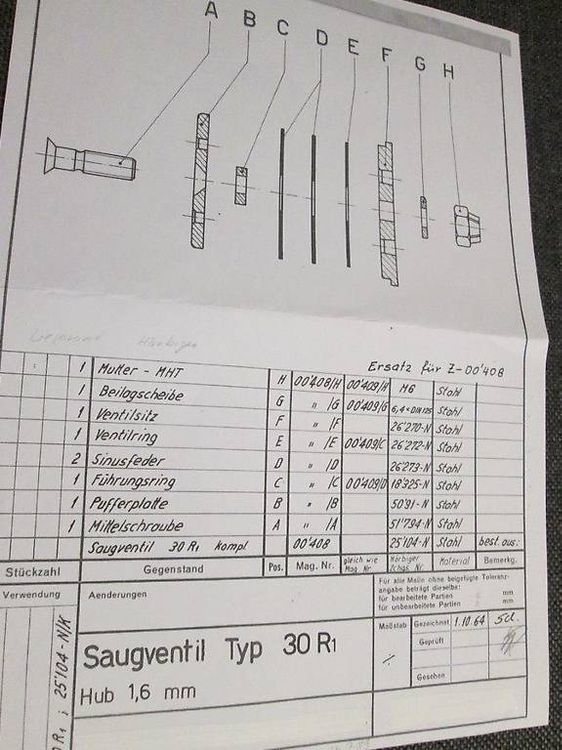 A B C D E F G H
Ersatz für Z-00'408
1 Mutter - MHT H 00'408/H 00'409/H M6 Stahl
1 Beilagscheibe G " /G 00'409/G 6,4 DIN 125 Stahl
1 Ventilsitz F " /F 26'270-N Stahl
1 Ventilring E " /E 00'409/C 26'272-N Stahl
2 Sinusfeder D " /D 26'273-N Stahl
1 Führungsring C " /C 00'409/D 18'325-N Stahl
1 Pufferplatte B " /B 50'91-N Stahl
1 Mittelschraube A " /A 51'794-N Stahl
Saugventil 30 R1 kompl 00'408 25'104-N Stahl best. aus:
Stückzahl Gegenstand Pos. Mag. Nr. gleich wie Mag. Nr. Hörbiger Material Bemerkg.
Verwendung Aenderungen
Für alle Maße ohne beigefügte Toleranz-
angabe beträgt dieselbe:
für bearbeitete Partien mm
für unbearbeitete Partien mm
Maßstab Gezeichnet 1.10.64
Geprüft
Gesehen
Saugventil Typ 30 R1
Hub 1,6 mm
R1 ; 25'104-N/K